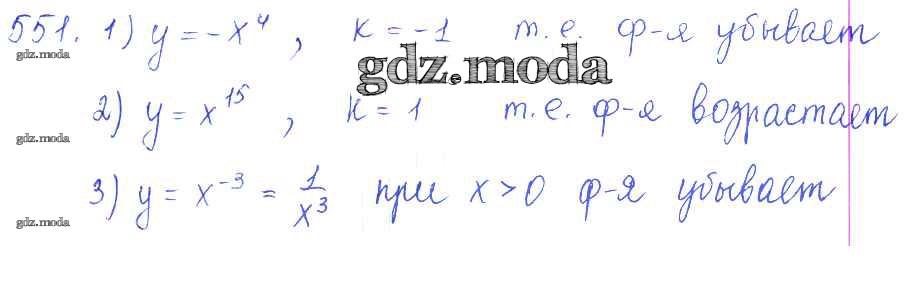 551. 1) y = -x⁴, k = -1 т.е. ф-я убывает
gdz.moda
gdz.moda
2) y = x¹⁵, k = 1 т.е. ф-я возрастает
gdz.moda
3) y = x⁻³ = 1/x³ при x > 0 ф-я убывает
gdz.moda